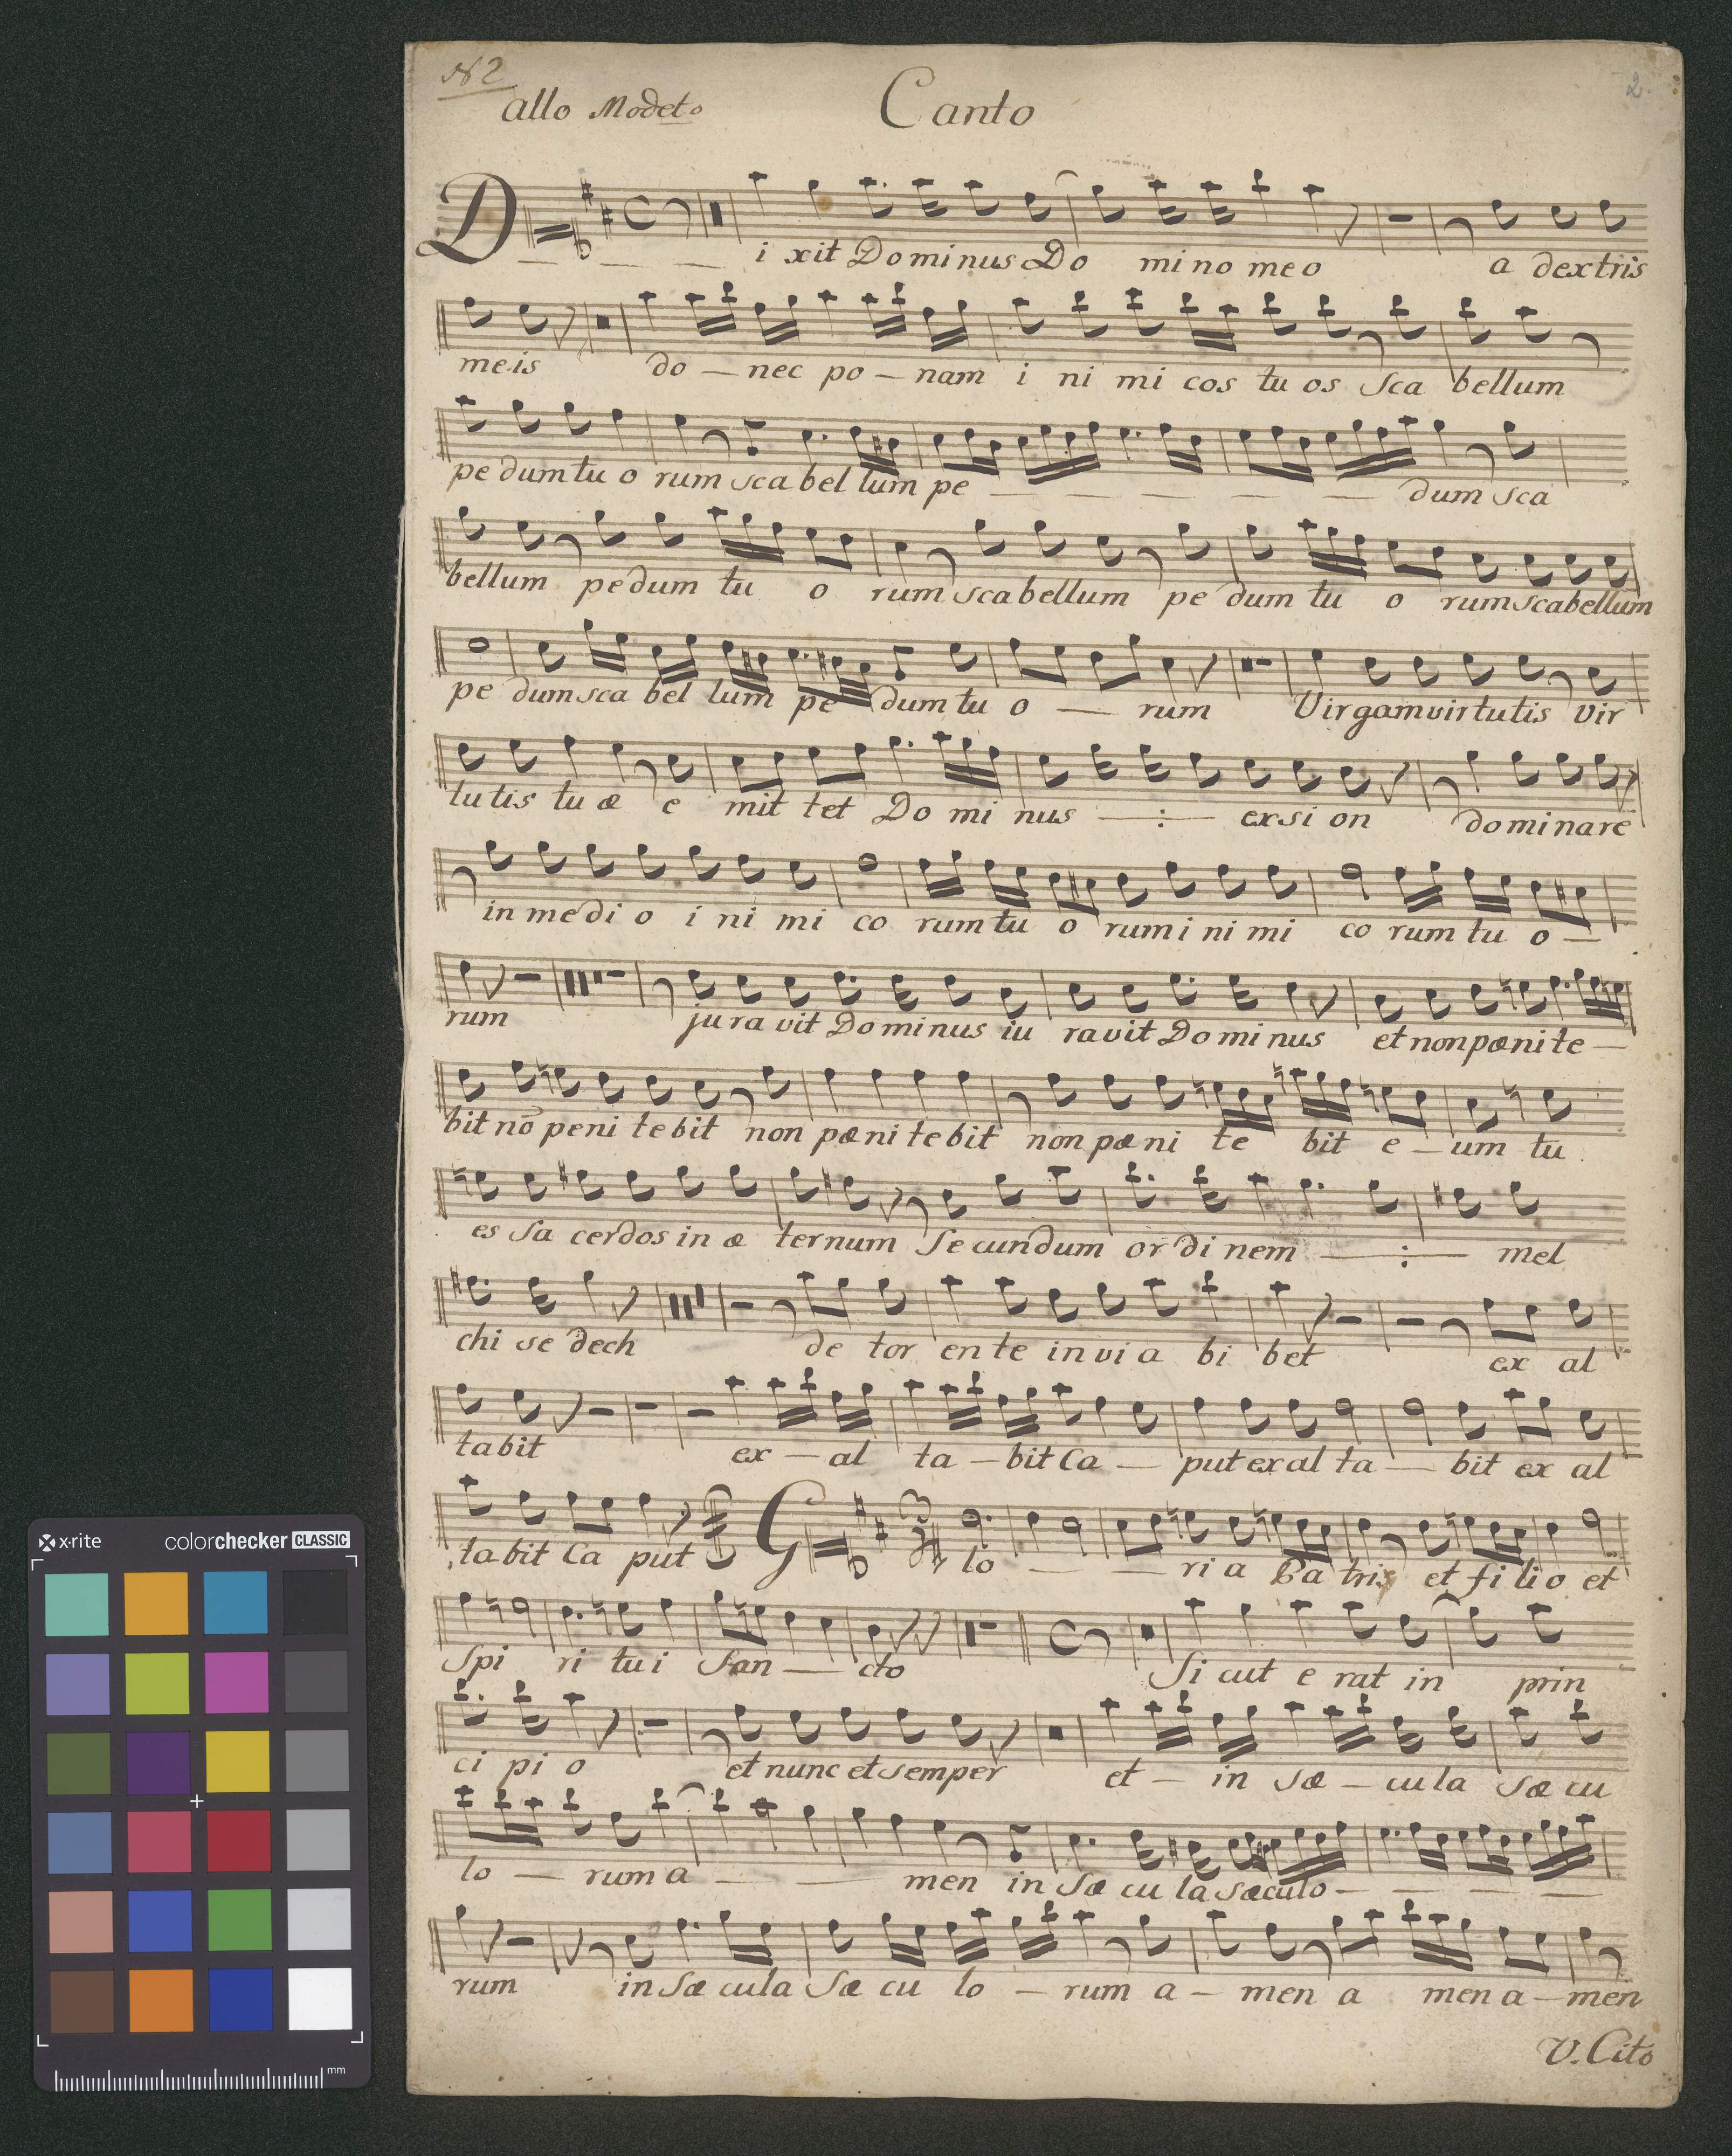 N 2
2.
Canto
allo Modeto
D i xit Do mi nus Do mi no me o a dex tris
me is do — nec po — nam i ni mi cos tu os sca bellum
pe dum tu o rum sca bel lum pe — — — — — dum sca
bellum pe dum tu o rum sca bellum pe dum tu o rum sca bellum
pe dum sca bel lum pe dum tu o — rum Virgam vir tu tis vir
tu tis tu æ e mit tet Do mi nus —:— ex si on do mi na re
in me di o i ni mi co rum tu o rum i ni mi co rum tu o —
rum ju ra vit Do mi nus iu ra vit Do mi nus et non pæ ni te —
bit nō pe ni te bit non pæ ni te bit non pæ ni te bit e — um tu
es Sa cer dos in æ ter num Se cun dum or di nem —:— mel
chi se dech de tor en te in vi a bi bet ex al
ta bit ex — al ta — bit Ca — put ex al ta — bit ex al
ta bit Ca put G lo — — ri a Pa tris et fi li o et
Spi ri tu i San — cto Si cut e rat in prin
ci pi o et nunc et sem per et — in sæ — cu la sæ cu
lo — rum a — — men in Sæ cu la sæ cu lo — — — —
rum in Sæ cu la Sæ cu lo — rum a — men a men a — men
V. Cito
x·rite colorchecker CLASSIC
mm